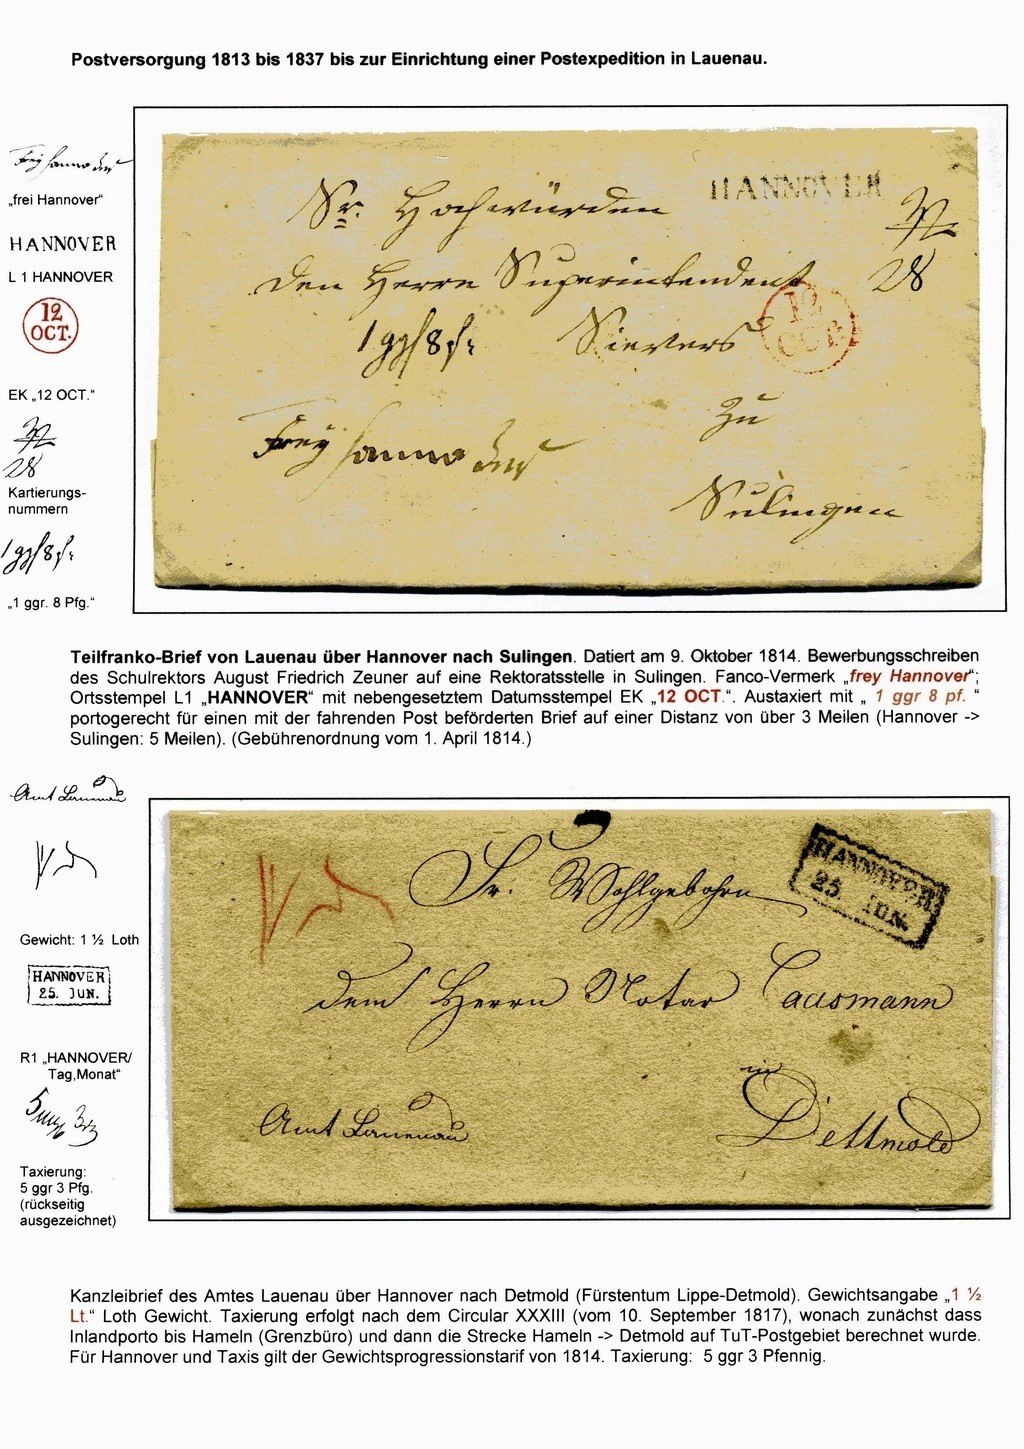 Postversorgung 1813 bis 1837 bis zur Einrichtung einer Postexpedition in Lauenau.
Frey Hannover
„frei Hannover“
HANNOVER
L 1 HANNOVER
12
OCT.
EK „12 OCT.“
28
Kartierungs-
nummern
1 ggr 8 pf:
„1 ggr. 8 Pfg.“
HANNOVER
Sr. Hochwürden
den Herrn Superintendent
28
12
OCT.
1 ggr 8 pf:
Sievers
Zu
Frey Hannover
Sulingen
Teilfranko-Brief von Lauenau über Hannover nach Sulingen. Datiert am 9. Oktober 1814. Bewerbungsschreiben
des Schulrektors August Friedrich Zeuner auf eine Rektoratsstelle in Sulingen. Fanco-Vermerk „frey Hannover“;
Ortsstempel L1 „HANNOVER“ mit nebengesetztem Datumsstempel EK „12 OCT.“. Austaxiert mit „ 1 ggr 8 pf. “
portogerecht für einen mit der fahrenden Post beförderten Brief auf einer Distanz von über 3 Meilen (Hannover ->
Sulingen: 5 Meilen). (Gebührenordnung vom 1. April 1814.)
Amt Lauenau
Gewicht: 1 ½ Loth
HANNOVER
25. JUN.
R1 „HANNOVER/
Tag,Monat“
Taxierung:
5 ggr 3 Pfg.
(rückseitig
ausgezeichnet)
HANNOVER
25. JUN.
Sr. Wohlgebohrn
dem Herrn Notar Causmann
in
Amt Lauenau
Dettmold
Kanzleibrief des Amtes Lauenau über Hannover nach Detmold (Fürstentum Lippe-Detmold). Gewichtsangabe „1 ½
Lt.“ Loth Gewicht. Taxierung erfolgt nach dem Circular XXXIII (vom 10. September 1817), wonach zunächst dass
Inlandporto bis Hameln (Grenzbüro) und dann die Strecke Hameln -> Detmold auf TuT-Postgebiet berechnet wurde.
Für Hannover und Taxis gilt der Gewichtsprogressionstarif von 1814. Taxierung: 5 ggr 3 Pfennig.